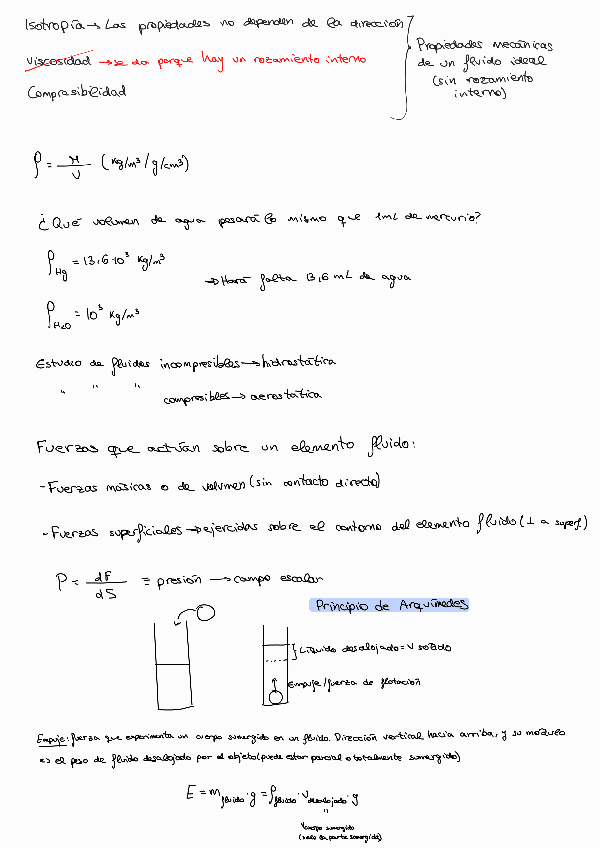 Isotropía → Las propiedades no dependen de la dirección
Viscosidad → se da porque hay un rozamiento interno
Compresibilidad
Propiedades mecánicas
de un fluido ideal
(sin rozamiento
interno)
ρ = M/V (Kg/m³ / g/cm³)
¿Qué volumen de agua pesará lo mismo que 1mL de mercurio?
ρHg = 13,6·10³ Kg/m³
→ Hará falta 13,6 mL de agua
ρH2O = 10³ Kg/m³
Estudio de fluidos incompresibles → hidrostática
" " " compresibles → aerostática
Fuerzas que actúan sobre un elemento fluido:
- Fuerzas másicas o de volumen (sin contacto directo)
- Fuerzas superficiales → ejercidas sobre el contorno del elemento fluido (⊥ a superf.)
P = dF/dS ≡ presión → campo escalar
Principio de Arquímedes
Líquido desalojado = V sólido
Empuje/fuerza de flotación
Empuje: fuerza que experimenta un cuerpo sumergido en un fluido. Dirección vertical hacia arriba, y su módulo
es el peso de fluido desalojado por el objeto (puede estar parcial o totalmente sumergido)
E = m fluido · g = ρ fluido · V desalojado · g
"
V cuerpo sumergido
(solo la parte sumergida)